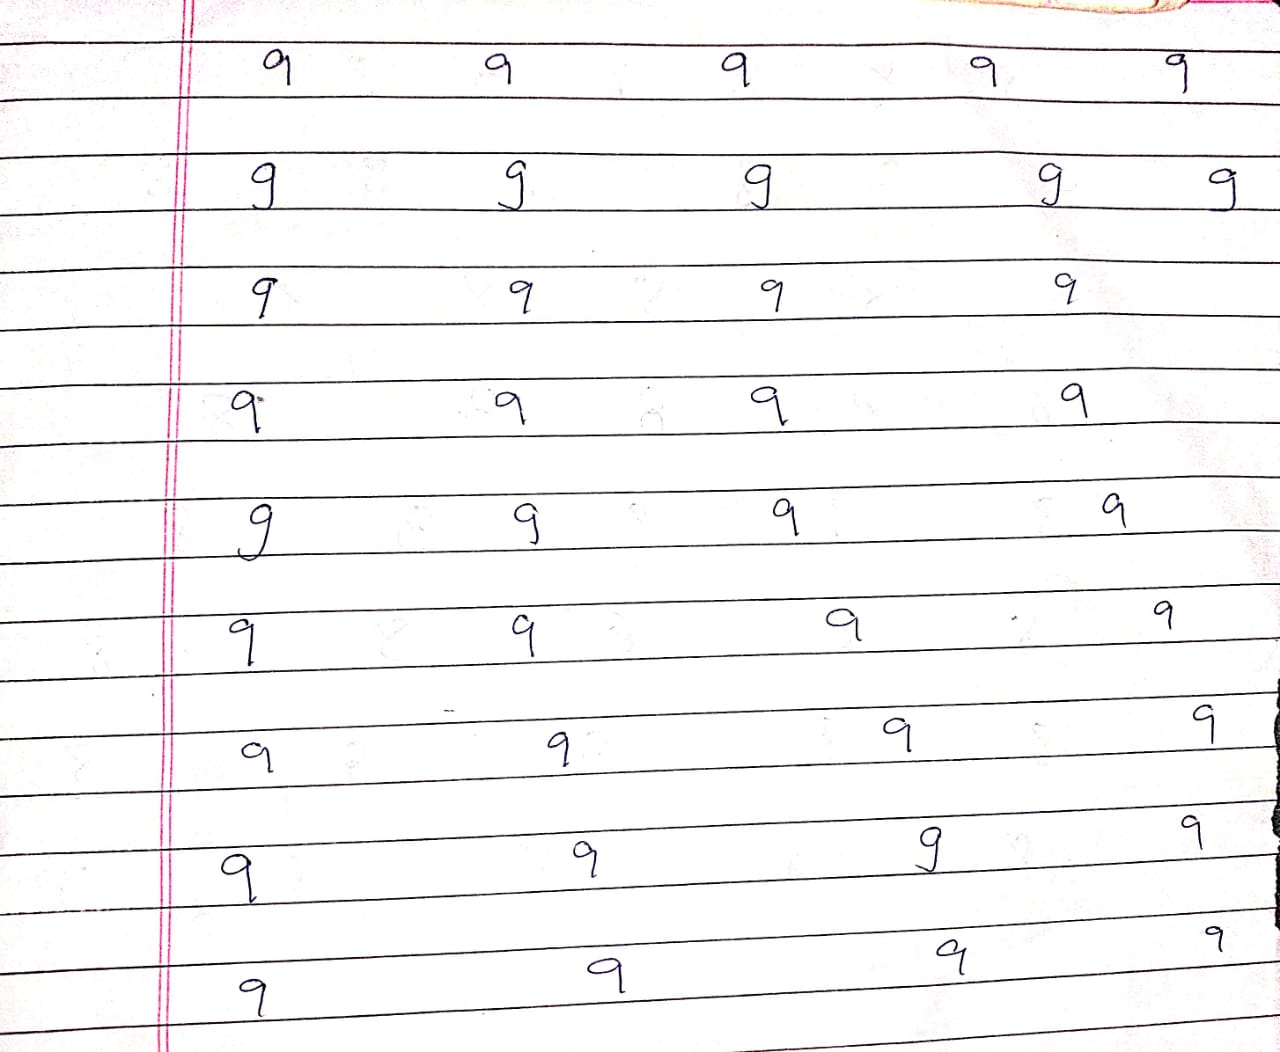 9 9 9 9 9
9 9 9 9 9
9 9 9 9
9 9 9 9
9 9 9 9
9 9 9 9
9 9 9 9
9 9 9 9
9 9 9 9